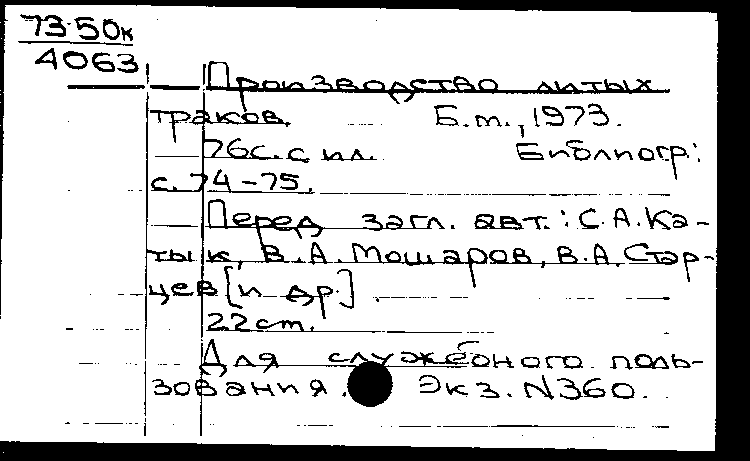 73-50к
4063
Производство литых
траков. Б.м., 1973.
76с. с ил. Библиогр:
с. 74-75.
Перед загл. авт.: С.А.Ка-
тык, В.А.Мошаров, В.А.Стар-
цев [и др.]
22 см.
Для служебного поль-
зования. Экз. N360.